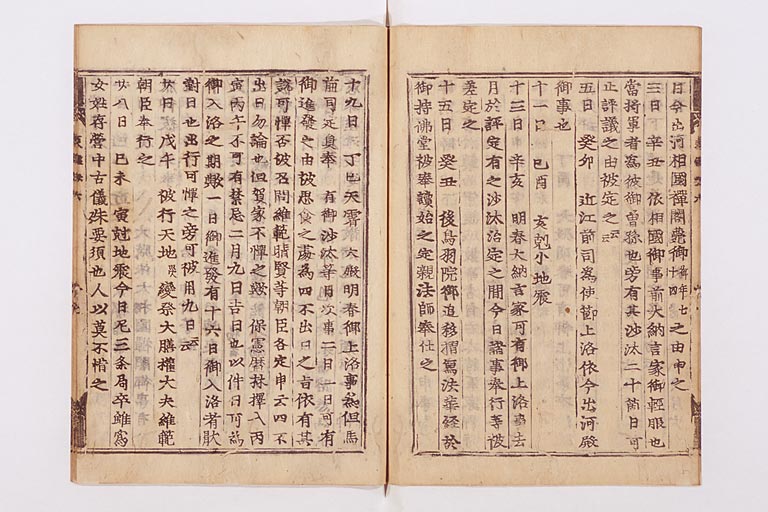 日今出河相國禪閤薨御年七十四之由申之
三日 辛丑 依相國御事前大納言家御輕服也
當將軍者為彼御曾孫也旁有其沙汰二十箇日可
止評議之由被定之云云
五日 癸卯 近江前司為使節上洛依今出河殿
御事也
十一日 己酉 亥剋小地震
十三日 辛亥 明春大納言家可有御上洛事去
月於評定有之沙汰治定之間今日諸事奉行等被
差定之
十五日 癸丑 後鳥羽院御追 寫法華經於
御持佛堂被奉讀始之定親法師奉仕之
十九日 丁巳 天霽 大殿明春御上洛事為但馬
前司定員奉 有御沙汰等日次事二月一日可有
御進發之由被思食之為四不出日之旨依有其
說可憚否被召問維範晴賢等朝臣各定申云四不
出日勿論也但賀家不憚之歟保憲曆林擇入丙
寅丙午不可有禁忌二月九日吉日也以件日可為
御入洛之期歟一日御進發有十六日御入洛者歟
對日也出行可憚之旁可被用九日云云
日 戊午 被行天地災變祭大膳權大夫維範
朝臣奉行之
廿八日 己未 寅尅地震今日尼三条局卒雖為
女姓存營中古儀殊要須也人以莫不惜之